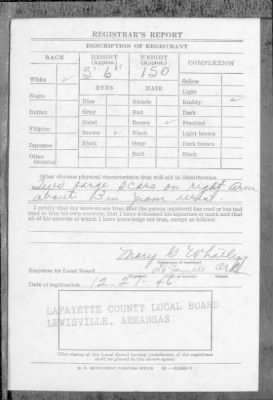 REGISTRAR'S REPORT
DESCRIPTION OF REGISTRANT
RACE HEIGHT (Approx.) WEIGHT (Approx.) COMPLEXION
5' 6" 150
White ✓ Sallow
EYES HAIR Light
Negro Ruddy ✓
Blue Blonde
Indian Gray Red Dark
Hazel Brown ✓ Freckled
Filipino Brown ✓ Black Light brown
Japanese Black Gray Dark brown
Other Bald Black
General
Other obvious physical characteristics that will aid in identification
large scars on right arm
about
I certify that my answers are true; that the person registered has read or has had
read to him his own answers; that I have witnessed his signature or mark and that
all of his answers of which I have knowledge are true, except as follows:
Mary G
Registrar for Local Board Lafayette Ark
Date of registration 12-27-46
LAFAYETTE COUNTY LOCAL BOARD
LEWISVILLE, ARKANSAS
(The stamp of the Local Board having jurisdiction of the registrant
must be placed in the above space)
U. S. GOVERNMENT PRINTING OFFICE